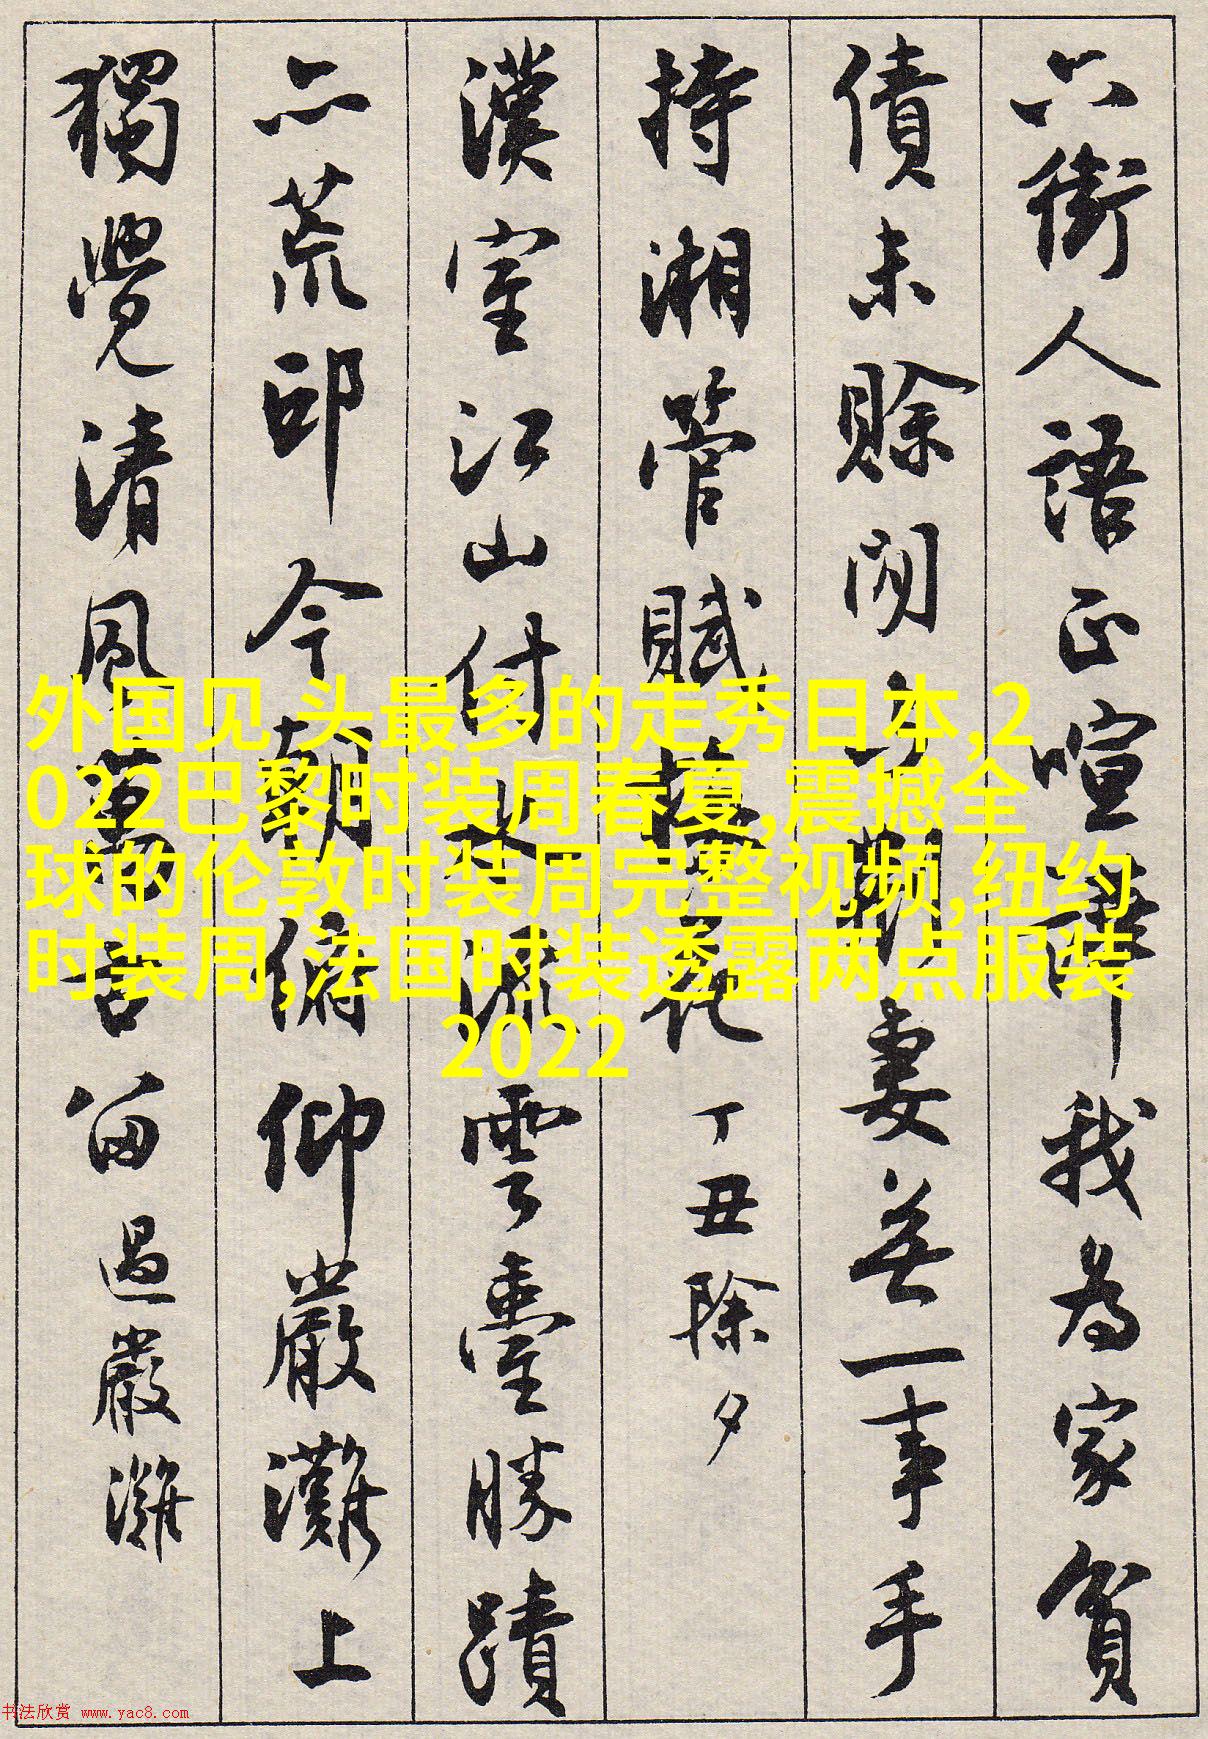 六街人語正喧譁我為家貧
債未賒閒妻無一事手
持湘管賦花 丁丑除夕
漢室江山付水流雲臺勝蹟
亦荒邱今朝俯仰嚴灘上
獨覺清風萬古留 過嚴灘
外国见,头最多的走秀日本,2
022巴黎时装周春夏,震撼全
球的伦敦时装周完整视频,纽约
时装周,法国时装透露两点服装
2022
书法欣赏 www.yac8.com